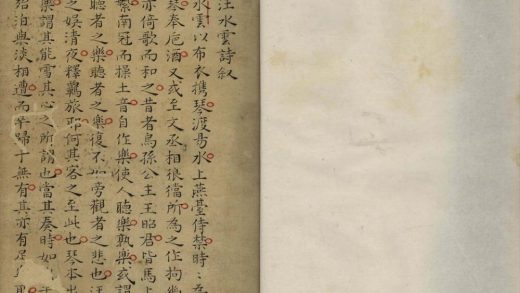 汪水雲詩叙
水雲以布衣携琴渡易水上燕臺侍禁時〻為
琴奉卮酒又或至文丞相狼鐺所為之作拘幽
亦倚歌而和之昔者烏孫公主王昭君皆馬上
縶南冠而操土音自作樂使人聽樂孰樂或謂
聽者之樂聽者之樂復不如旁觀者之悲也汪
之娛清夜釋羈旅耶何其客之至此也琴本出
樂謂其能雪其心之所謂也當其奏時如
殆泊與淡相遭而卒歸于無有其亦有足